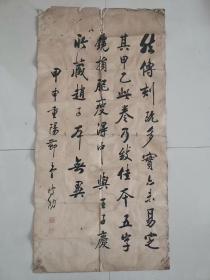 世傳刻	頗多實亦未易定
其甲乙此卷乃發佳本五字
鑱損肥瘦得中與王子慶
所藏趙子固本無異
甲申重陽節